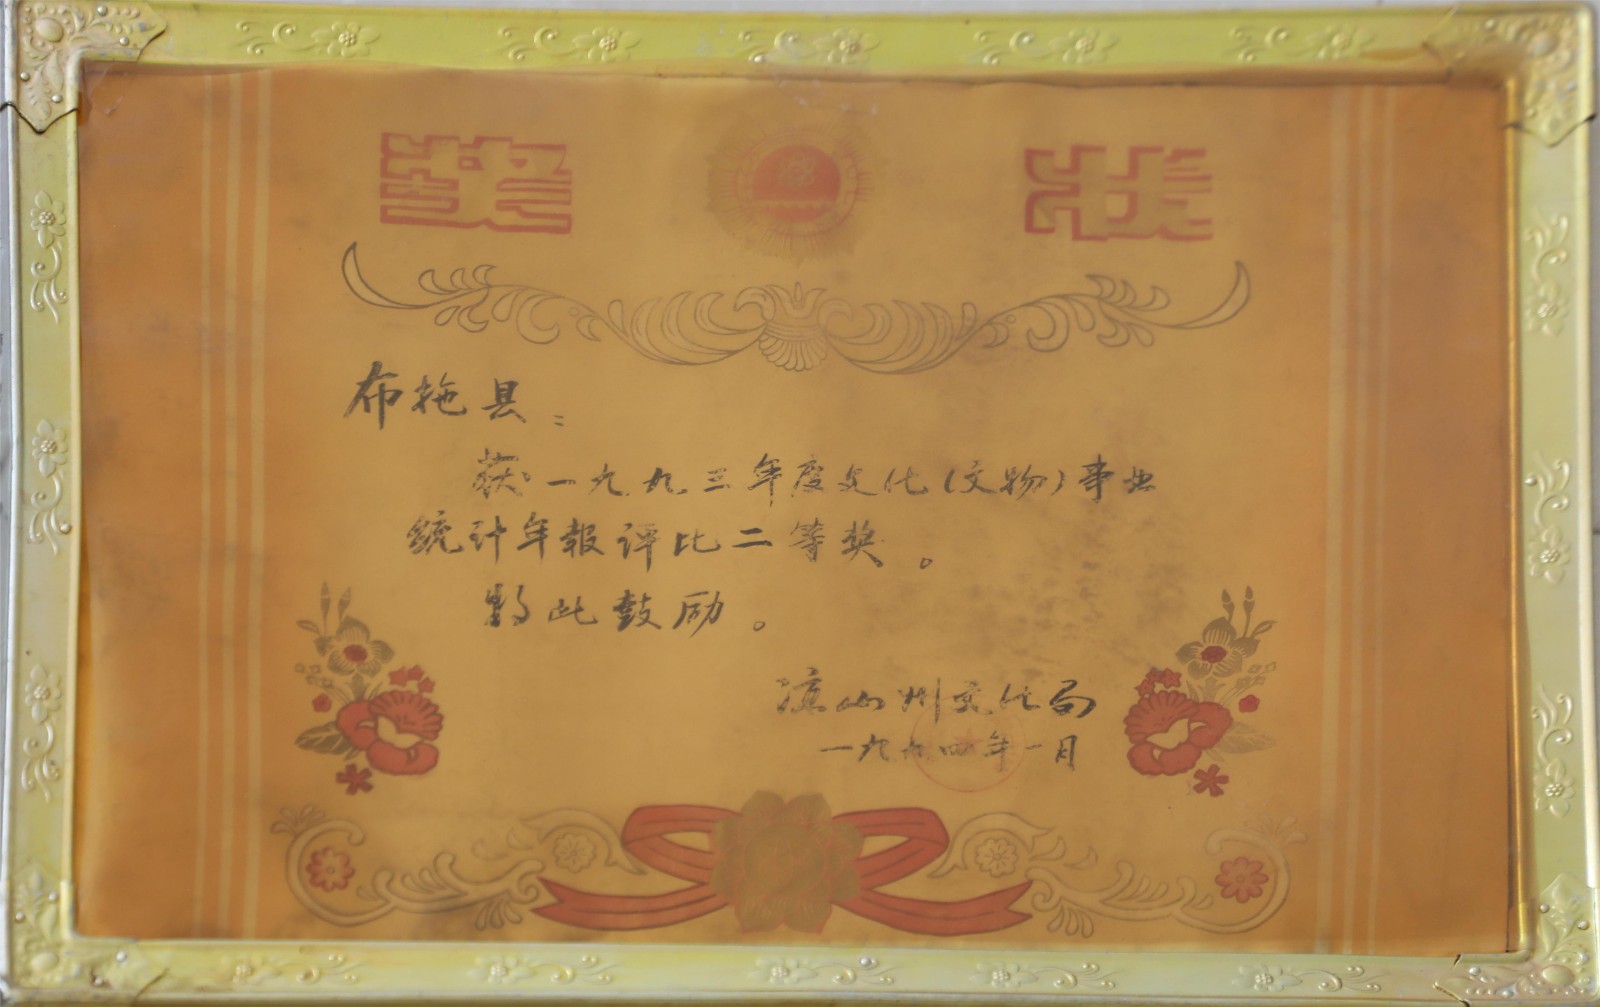 奖状
布拖县：
获一九九三年度文化(文物)事业
统计年报评比二等奖。
特此鼓励。
凉山州文化局
一九九四年一月